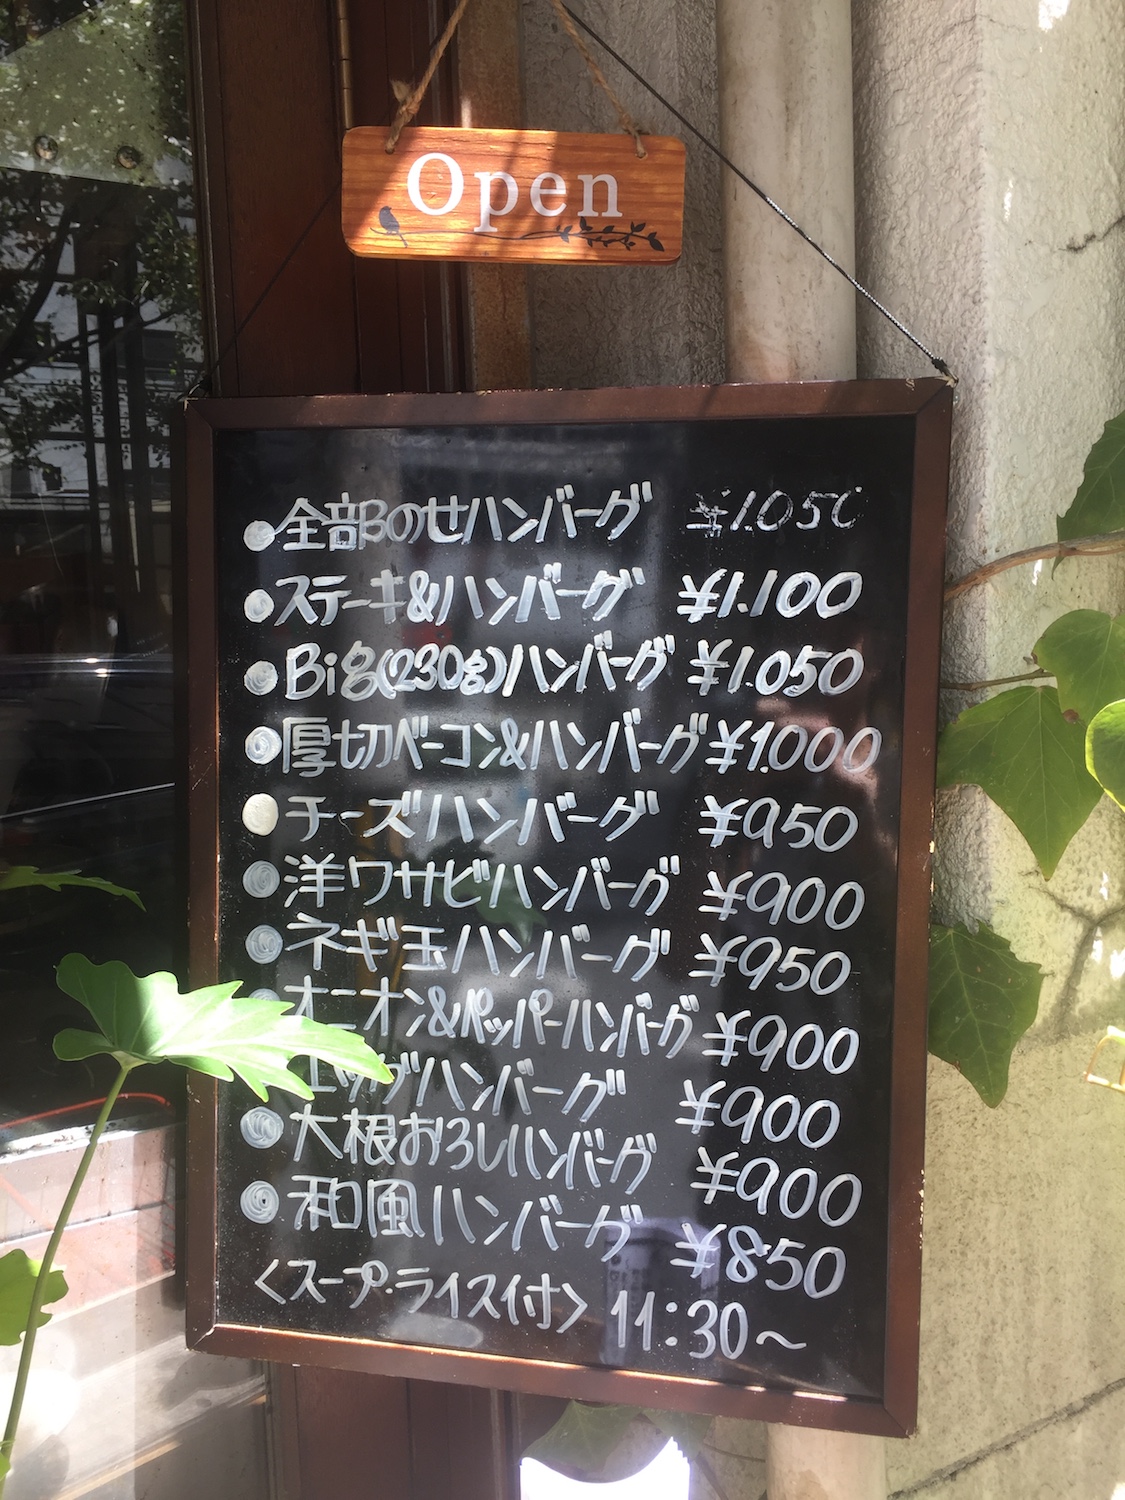 Open
●全部のせハンバーグ ¥1.050
●ステーキ&ハンバーグ ¥1.100
●Big(230g)ハンバーグ ¥1.050
●厚切ベーコン&ハンバーグ ¥1.000
●チーズハンバーグ ¥950
●洋ワサビハンバーグ ¥900
●ネギ玉ハンバーグ ¥950
●オニオン&ペッパーハンバーグ ¥900
エッグハンバーグ ¥900
●大根おろしハンバーグ ¥900
●和風ハンバーグ ¥850
<スープ・ライス付> 11:30~